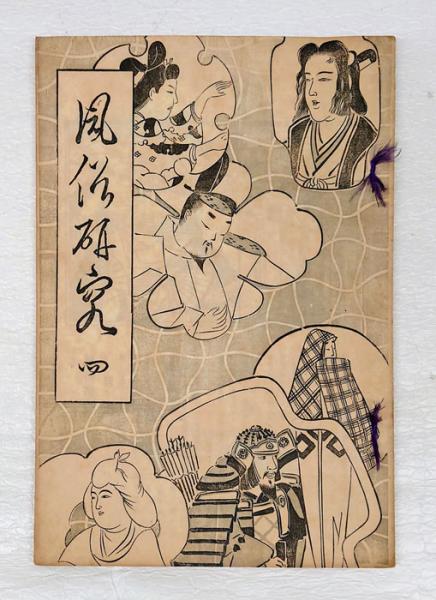 風俗研究
四